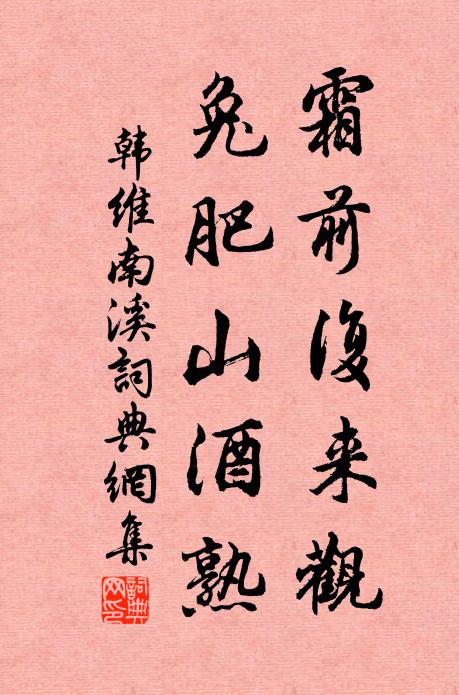 霜前復来觀
兔肥山酒熟
韩维南溪詞典網集
詞典网印